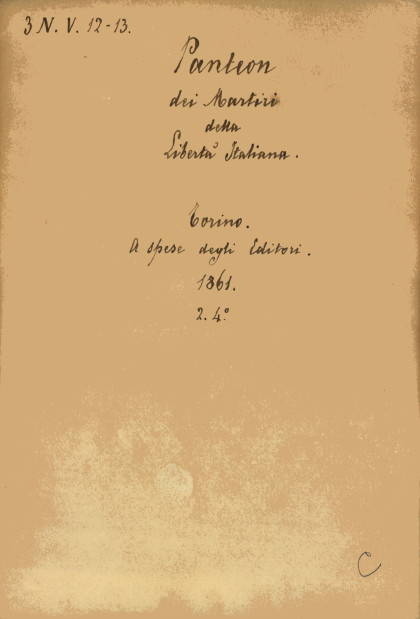 3 N. V. 12-13.
Panteon
dei Martiri
della
Libertà Italiana.
Torino.
A spese degli Editori.
1861.
2. 4º
C